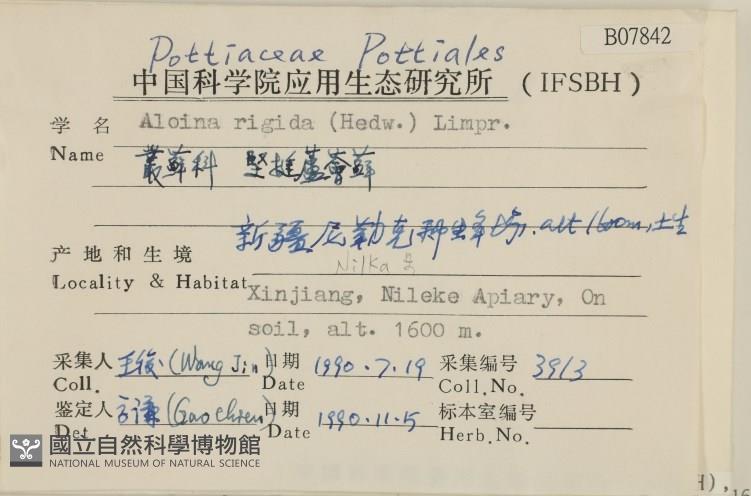 B07842
Pottiaceae Pottiales
中国科学院应用生态研究所 (IFSBH)
学名 Aloina rigida (Hedw.) Limpr.
Name 叢蘚科 堅挺蘆薈蘚
新疆尼勒克种蜂场.alt 1600m,土生
产地和生境
Nilka
Locality & Habitat Xinjiang, Nileke Apiary, On
soil, alt. 1600 m.
采集人 王 (Wang Jin) 日期 1990.7.19 采集编号 3913
Coll. Date Coll.No.
鉴定人 高谦 (Gao Chien) 日期 1990.11.5 标本室编号
Det Date Herb.No.
國立自然科學博物館
NATIONAL MUSEUM OF NATURAL SCIENCE
H),